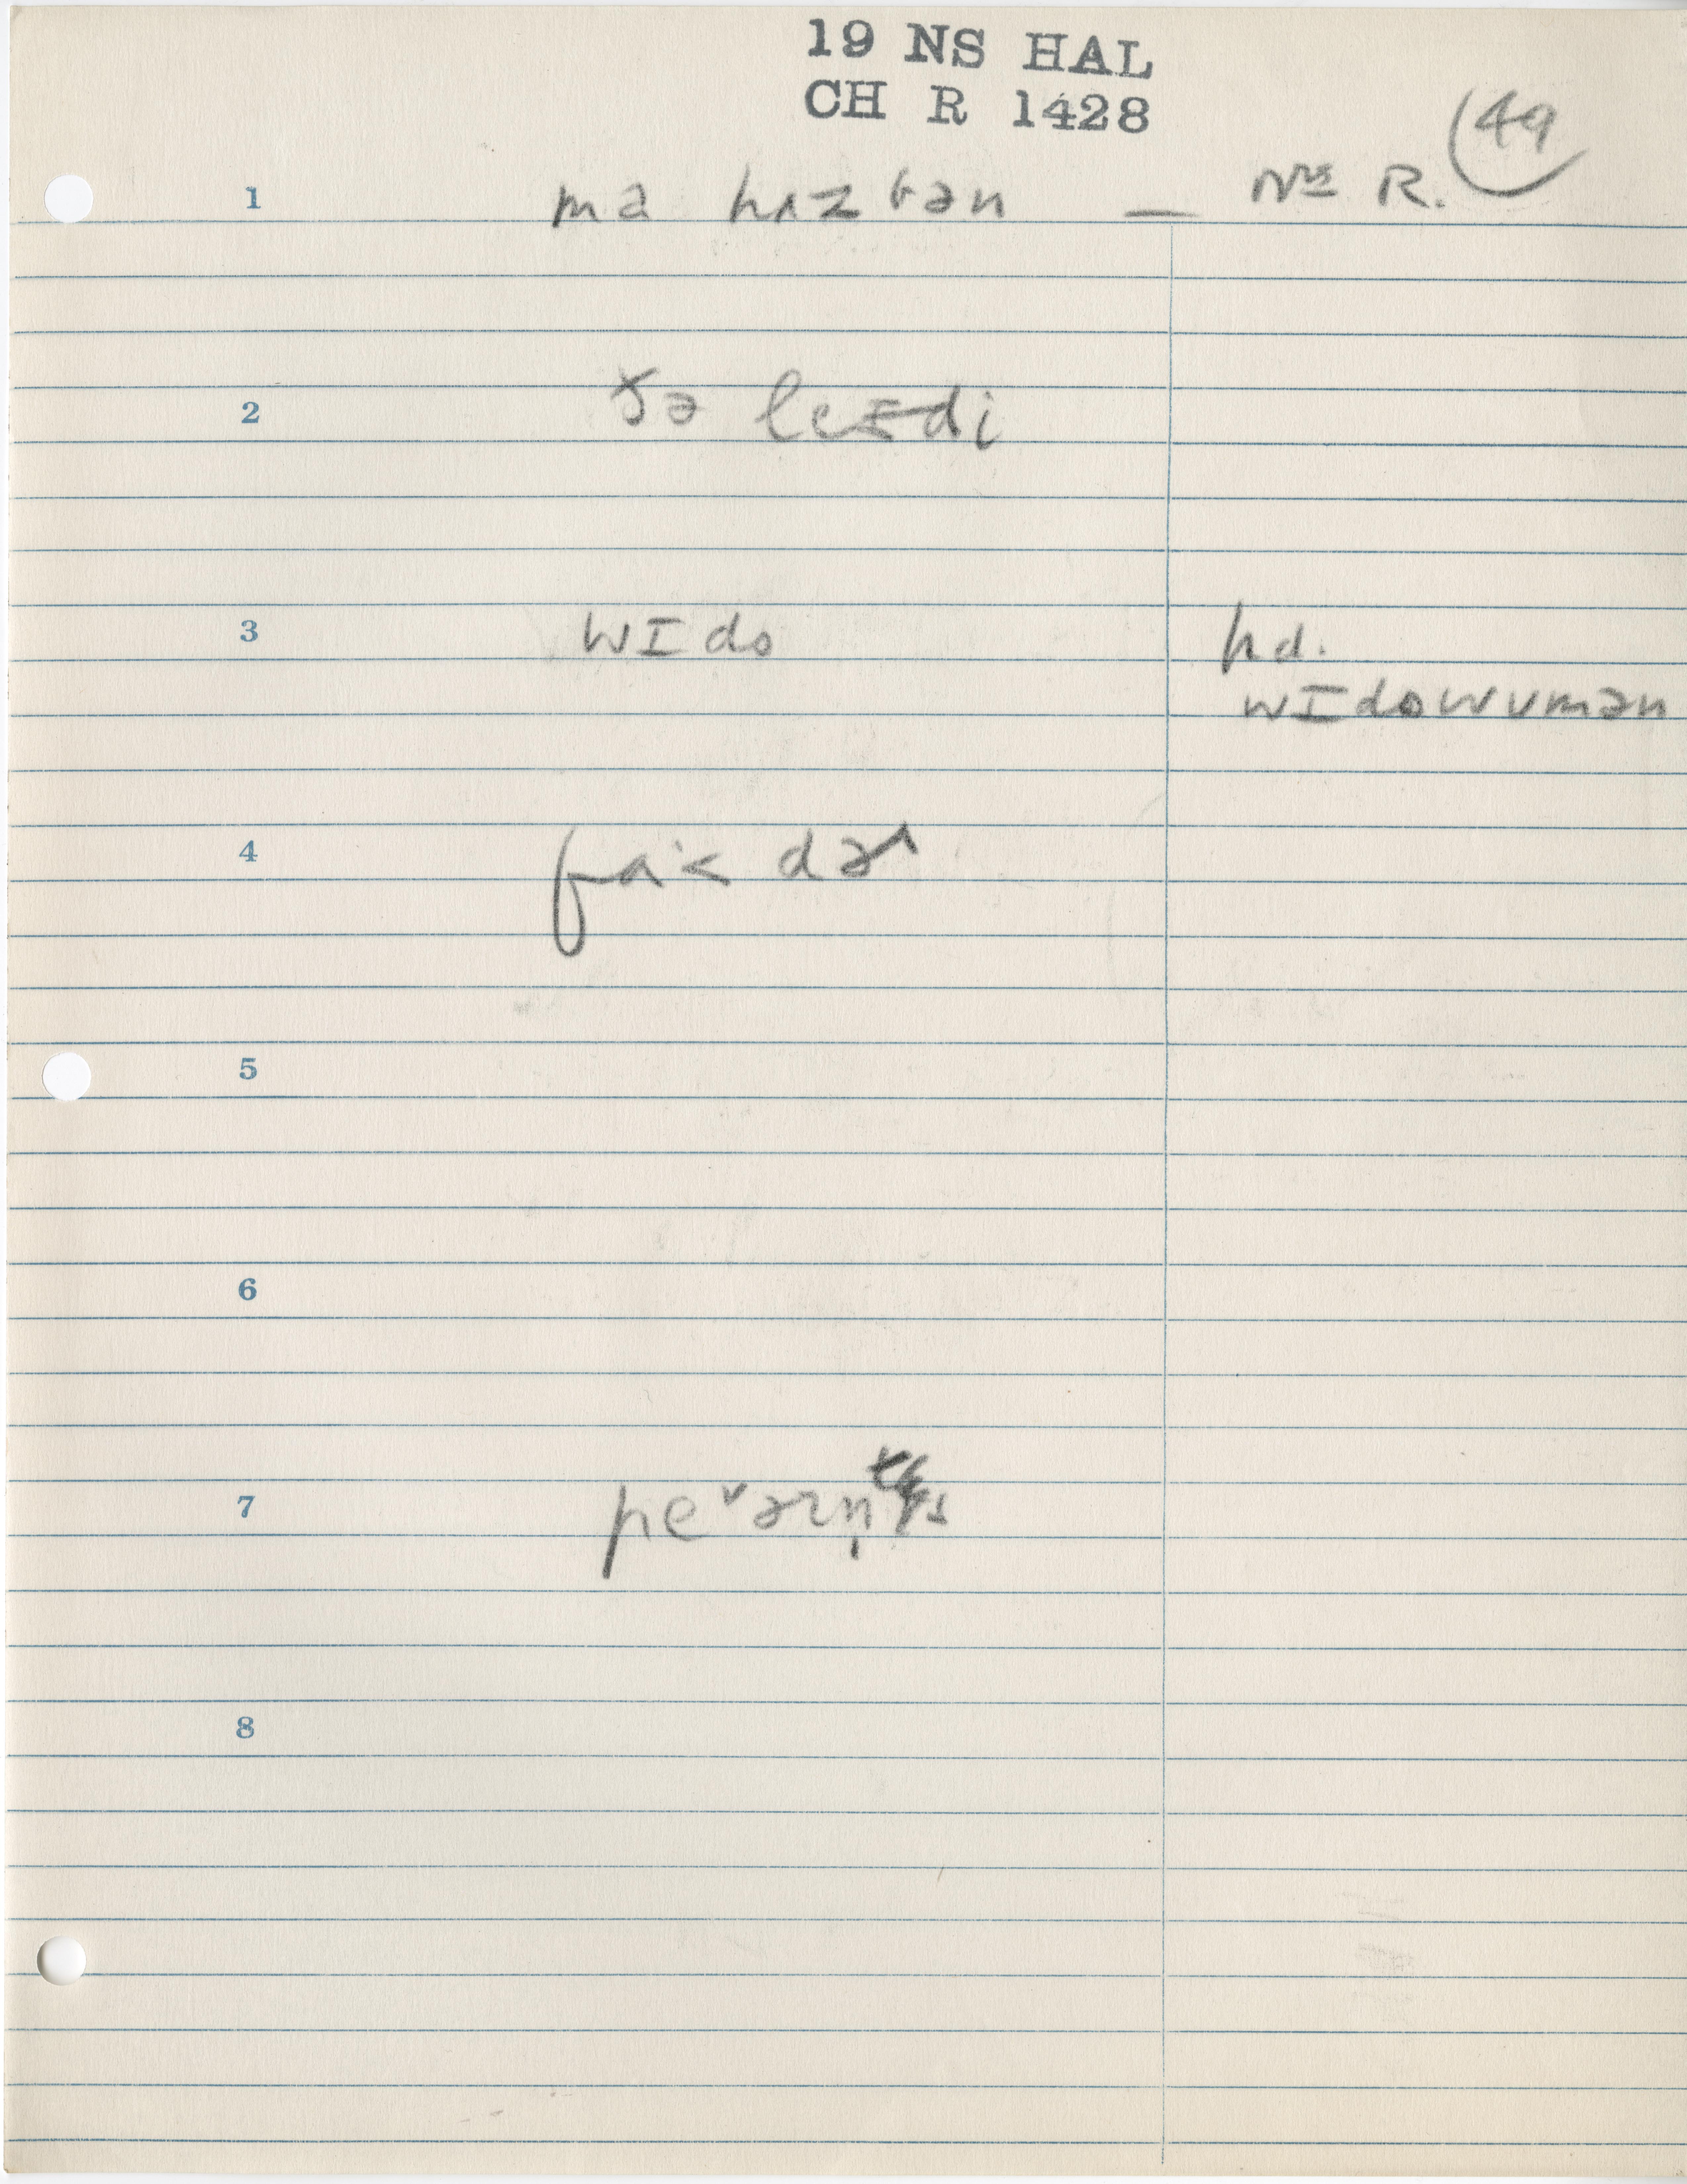 19 NS HAL
CH R 1428
49
1 mə hʌzbən — Mrs R.
2 ðə leɪdi
3 wɪdo hd.
wɪdowumən
4 fa˞<dɚ
5
6
7
8